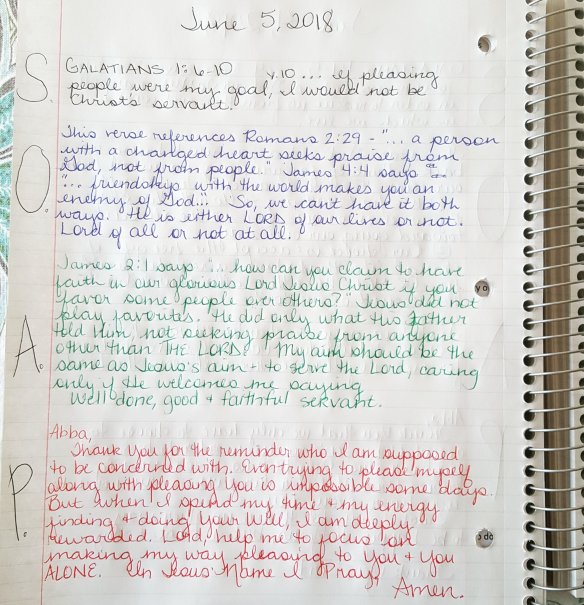 June 5, 2018
S. GALATIANS 1:6-10 v.10 ... if pleasing
people were my goal, I would not be
Christ's servant.
This verse references Romans 2:29 - "... a person
with a changed heart seeks praise from
God, not from people." James 4:4 says -
"... friendship with the world makes you an
O. enemy of God..." So, we can't have it both
ways. He is either LORD of our lives or not.
Lord of all or not at all.
James 2:1 says "... how can you claim to have
faith in our glorious Lord Jesus Christ if you
favor some people over others?" Jesus did not
play favorites. He did only what His Father
told Him, not seeking praise from anyone
A. other than THE LORD. My aim should be the
same as Jesus's aim - to serve the Lord, caring
only if He welcomes me saying
Well done, good + faithful servant.
Abba,
Thank You for the reminder who I am supposed
to be concerned with. Even trying to please myself
along with pleasing You is impossible some days.
P. But when I spend my time + my energy
finding + doing Your Will, I am deeply
rewarded. Lord, help me to focus on
making my way pleasing to You + You
ALONE. In Jesus' Name I Pray,
Amen.
yo
s do